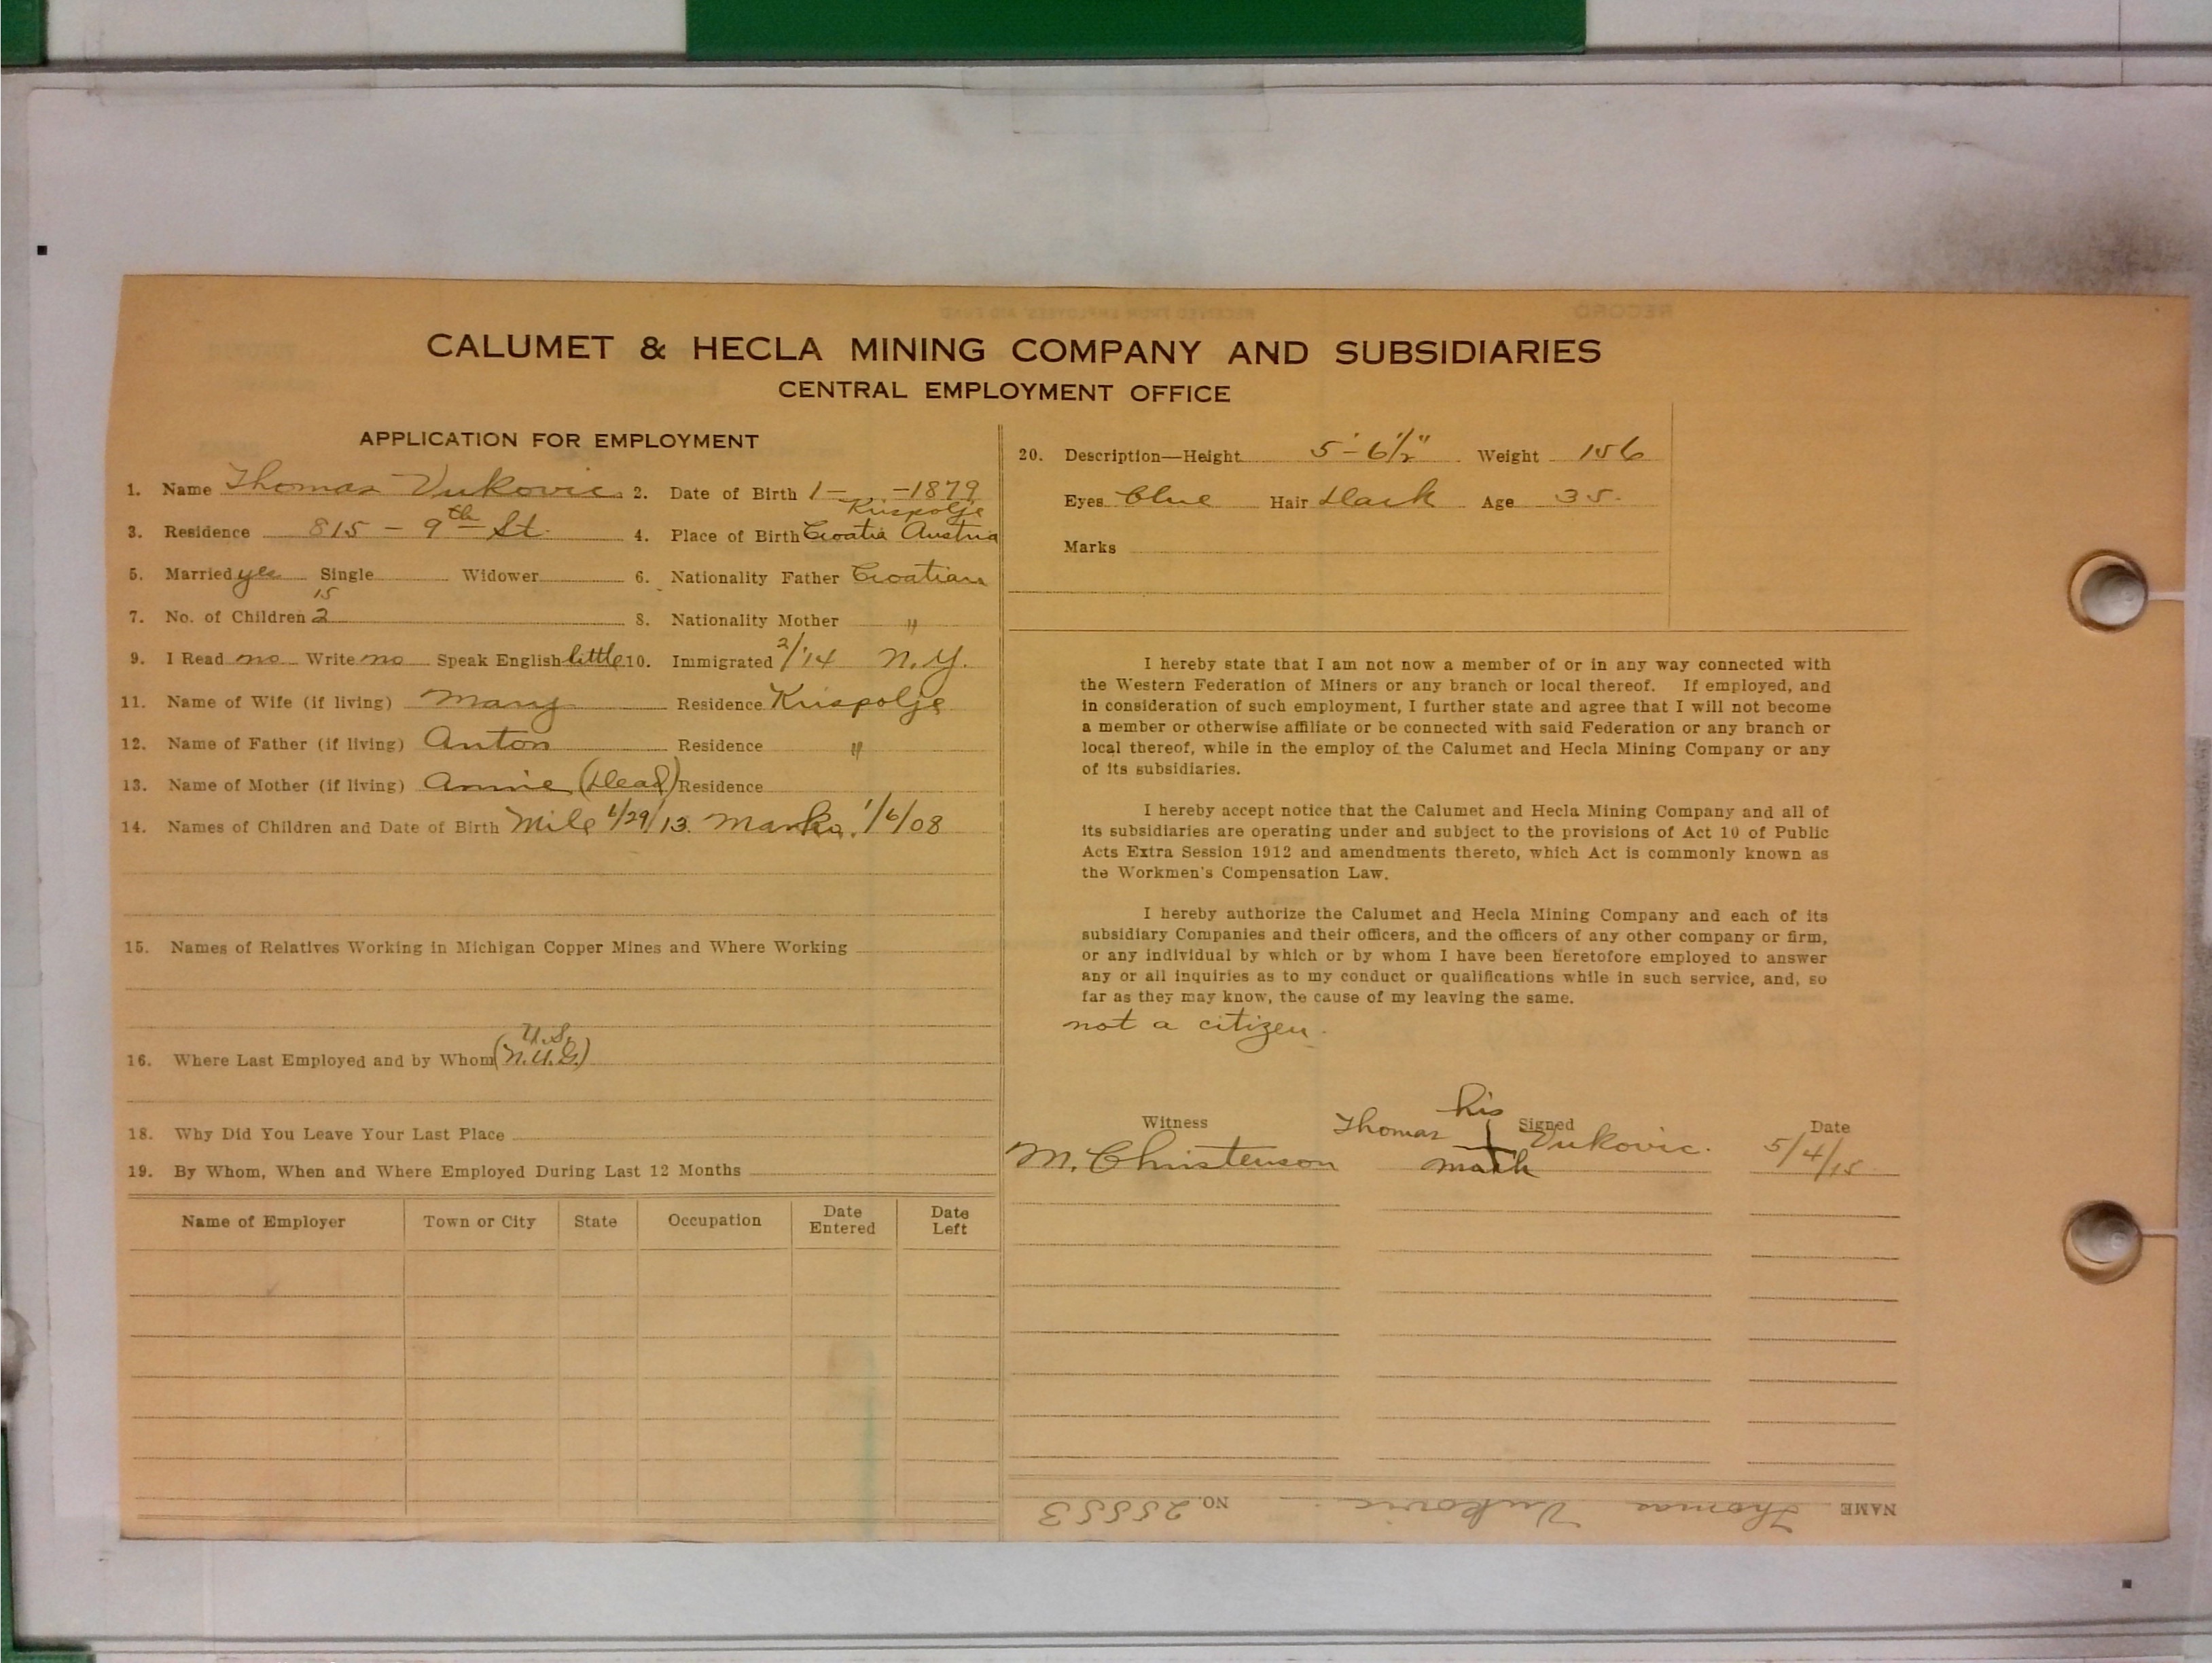 CALUMET & HECLA MINING COMPANY AND SUBSIDIARIES
CENTRAL EMPLOYMENT OFFICE
APPLICATION FOR EMPLOYMENT
1. Name Thomas Vukovic. 2. Date of Birth 1- -1879
3. Residence 815 - 9th St. 4. Place of Birth Krispolje Croatia Austria
5. Married yes Single Widower 6. Nationality Father Croatian
7. No. of Children 2 15 8. Nationality Mother "
9. I Read no Write no Speak English little 10. Immigrated 2/'14 N.Y.
11. Name of Wife (if living) Mary Residence Krispolje
12. Name of Father (if living) Anton Residence "
13. Name of Mother (if living) Annie (Dead) Residence
14. Names of Children and Date of Birth Mile 6/29/13. Marko. 1/6/08
15. Names of Relatives Working in Michigan Copper Mines and Where Working
16. Where Last Employed and by Whom (N.U.G.) U.S.
18. Why Did You Leave Your Last Place
19. By Whom, When and Where Employed During Last 12 Months
Name of Employer Town or City State Occupation Date Entered Date Left
20. Description—Height 5'-6½" Weight 156
Eyes Blue Hair Dark Age 35.
Marks
I hereby state that I am not now a member of or in any way connected with
the Western Federation of Miners or any branch or local thereof. If employed, and
in consideration of such employment, I further state and agree that I will not become
a member or otherwise affiliate or be connected with said Federation or any branch or
local thereof, while in the employ of the Calumet and Hecla Mining Company or any
of its subsidiaries.
I hereby accept notice that the Calumet and Hecla Mining Company and all of
its subsidiaries are operating under and subject to the provisions of Act 10 of Public
Acts Extra Session 1912 and amendments thereto, which Act is commonly known as
the Workmen's Compensation Law.
I hereby authorize the Calumet and Hecla Mining Company and each of its
subsidiary Companies and their officers, and the officers of any other company or firm,
or any individual by which or by whom I have been heretofore employed to answer
any or all inquiries as to my conduct or qualifications while in such service, and, so
far as they may know, the cause of my leaving the same.
not a citizen.
Witness Signed Date
M. Christenson Thomas his mark Vukovic. 5/4/15
NAME Thomas Vukovic NO. 25553